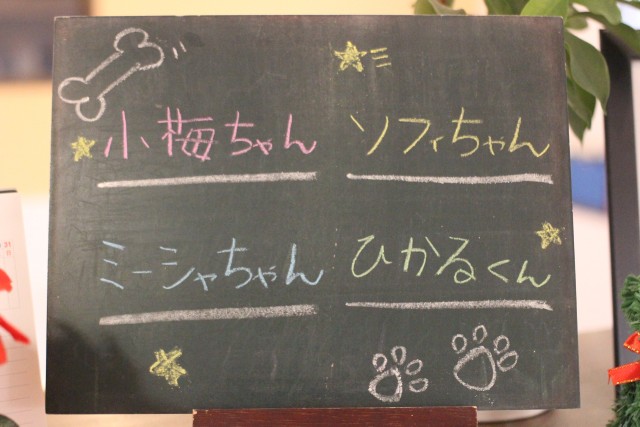 小梅ちゃん
ソフィちゃん
ミーシャちゃん
ひかるくん
31